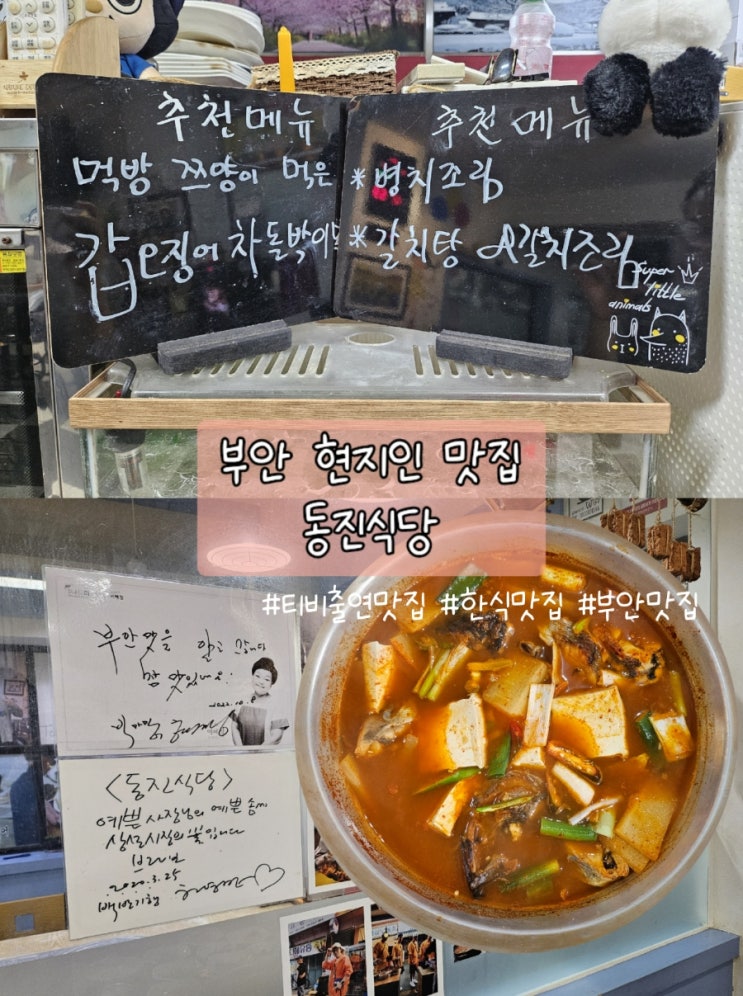 추천메뉴
먹방 쯔양이 먹은
갑오징어 차돌박이
추천 메뉴
*병치조림
*갈치탕 갈치조림
Super
little
animals
부안 현지인 맛집
동진식당
#티비출연맛집 #한식맛집 #부안맛집
부안맛을 알고 갑니다
참 맛있네요.
2022.10.
<동진식당>
예쁜 사장님의 예쁜 솜씨
상설시장의 꽃입니다
2020.3.25
백반기행